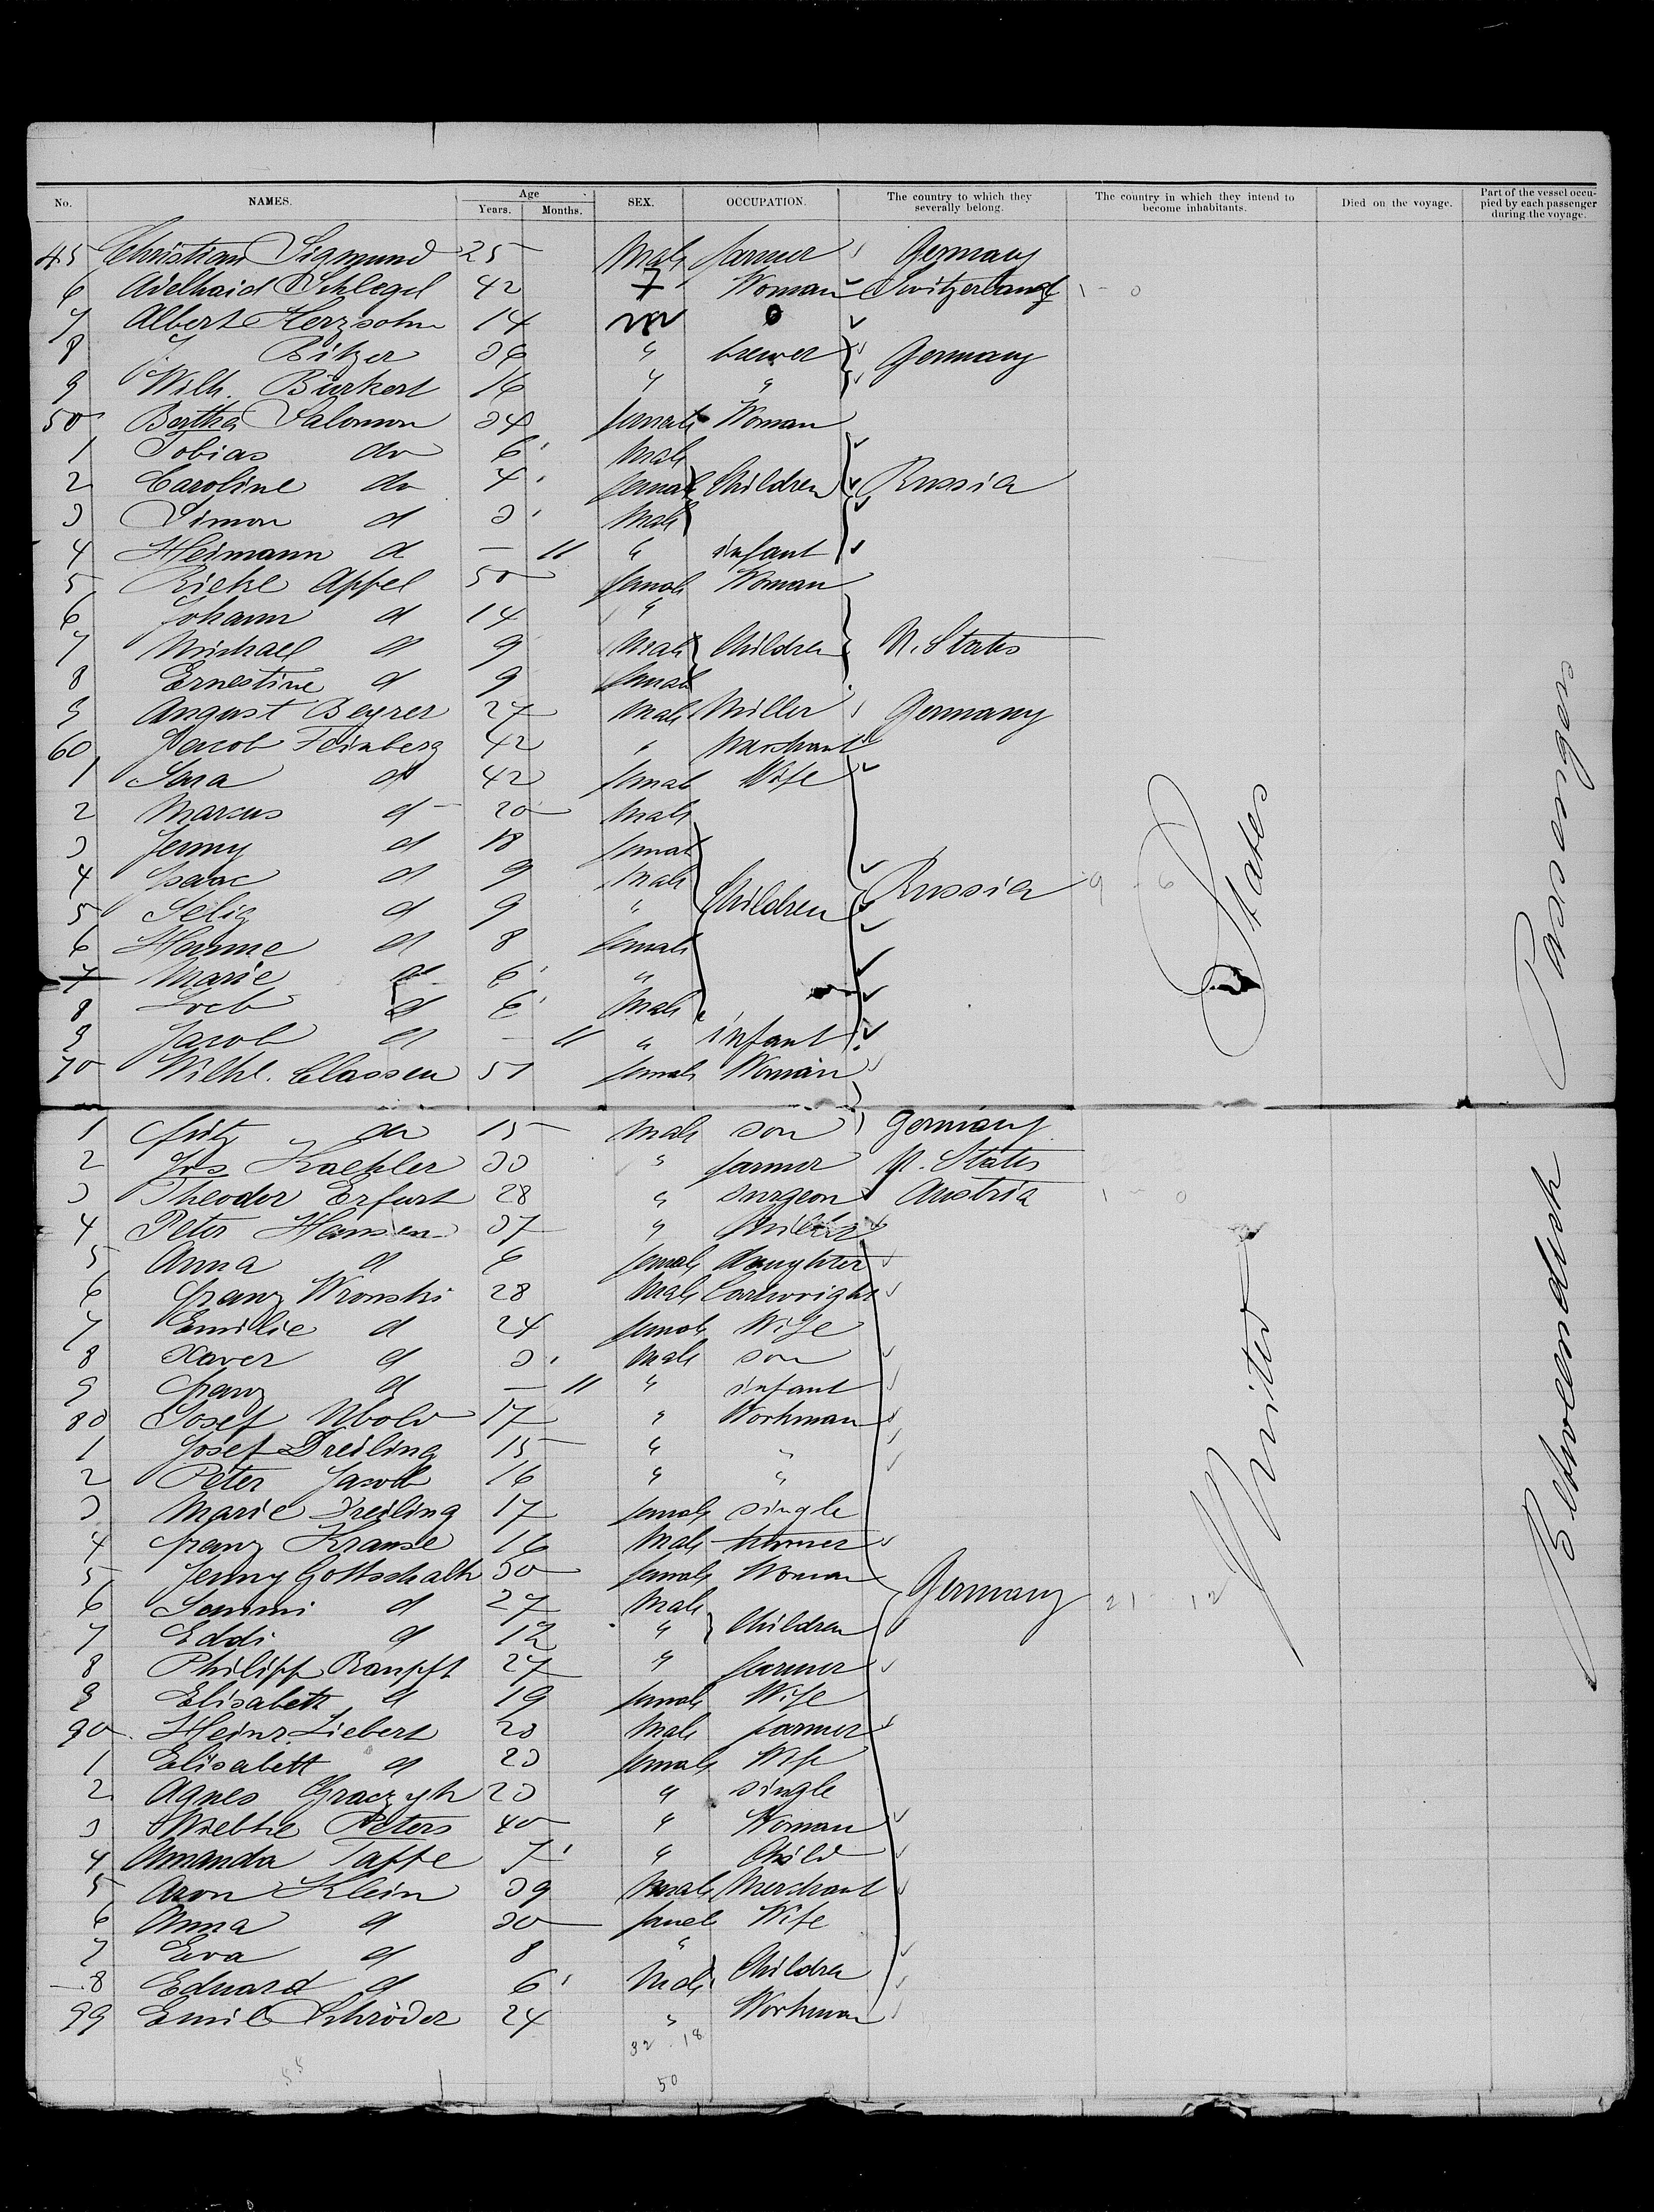 No. NAMES. Age Years. Months. SEX. OCCUPATION. The country to which they severally belong. The country in which they intend to become inhabitants. Died on the voyage. Part of the vessel occupied by each passenger during the voyage.
45 Christian Sigmund 25 Male farmer Germany
6 Adelhaid Schlegel 42 F Woman Switzerland 1 - 0
7 Albert Herzsohn 14 m 0
8 J Bitzer 36 " brewer Germany
9 Wilh. Burkert 16 " "
50 Bertha Salomon 34 female Woman
1 Tobias do 6 Male
2 Caroline do 4 female Children Russia
3 Simon d 3 Male
4 Heimann d — 11 " infant
5 Riekl Apfel 50 female Woman
6 Johann d 14 "
7 Michael d 9 Male Children U. States
8 Ernestine d 9 female
9 August Beyrer 27 Male Miller Germany
60 Jacob Feinberg 42 " Merchant
1 Sara d 42 female Wife
2 Marcus d 20 Male
3 Jenny d 18 female
4 Isaac d 9 Male Russia 9 - 6
5 Selig d 9 " Children
6 Hanne d 8 female
7 Marie d 6 "
8 Loeb d 6 Male
9 Jacob d — 11 " infant
70 Wilhl. Classen 51 female Woman
1 Fritz do 15 Male son Germany
2 Jos Koehler 33 " farmer U. States
3 Theodor Erfurt 28 " surgeon Austria 1 - 0
4 Peter Hansen 37 "
5 Anna d 6 female daughter
6 Franz Wronski 28 Male Cartwright
7 Emilie d 24 female Wife
8 Xaver d 3 Male son
9 Franz d — 11 " infant
80 Josef Ubold 17 " Workman
1 Josef Dreiling 15 " "
2 Peter Jacob 16 " "
3 Marie Dreiling 17 female single
4 Franz Krause 16 Male
5 Jenny Gottschalk 50 female Woman Germany 21 12
6 Sammi d 27 Male
7 Eddi d 12 " Children
8 Philipp Raupft 27 " farmer
9 Elisabeth d 19 female Wife
90 Heinr. Liebert 23 Male farmer
1 Elisabett d 23 female Wife
2 Agnes Graczyk 23 " single
3 Wiebke Peters 40 " Woman
4 Amanda Taffe 7 " Child
5 Aron Klein 39 Male Merchant
6 Anna d 30 female Wife
7 Eva d 8 "
8 Eduard d 6 Male Children
99 Emil Schröder 24 " Workman
32 . 18
55
50
United States
Betweendeck Passengers